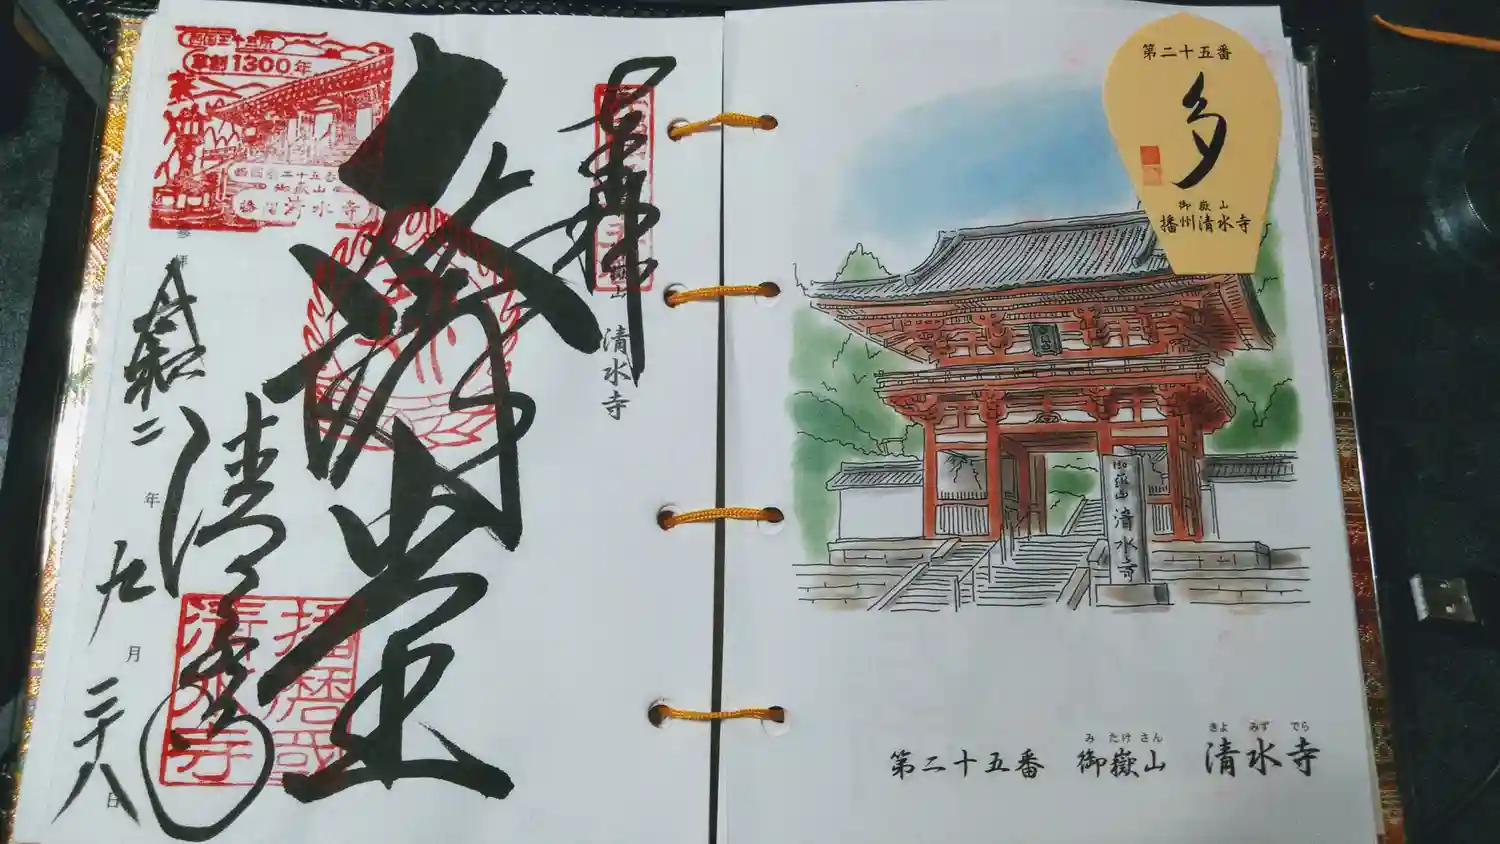 奉拝
清水寺
大講堂
清水寺
西国三十三所
草創1300年
西国第二十五番
御嶽山
播州清水寺
播磨国
清水寺
令和二年九月二十八日
第二十五番
多
御嶽山
播州清水寺
御嶽山 清水寺
み たけ さん きよ みず でら
第二十五番 御嶽山 清水寺